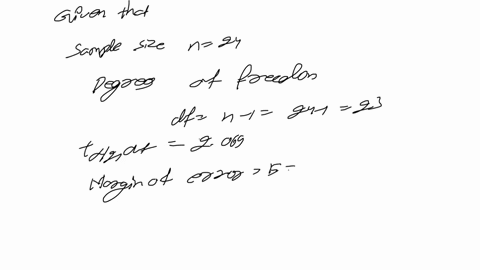 Given that
Sample size n=24
Degree of freedom
df= n-1 = 24-1 = 23
tα/2,df = 2.069
Margin of error = 5 -